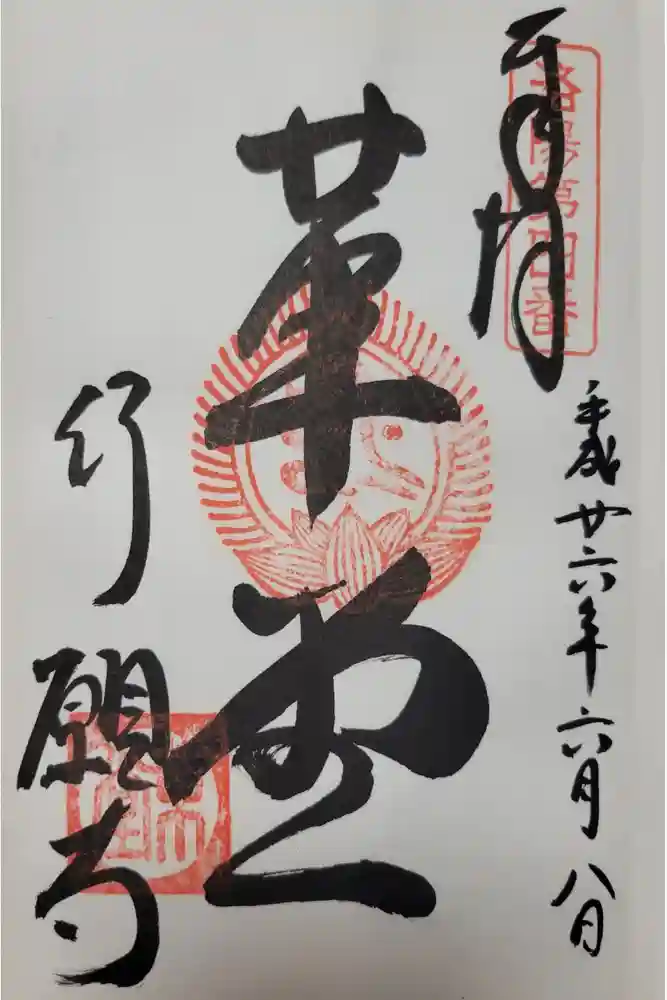 奉拝
洛陽第四番
平成廿六年六月八日
革堂
行願寺